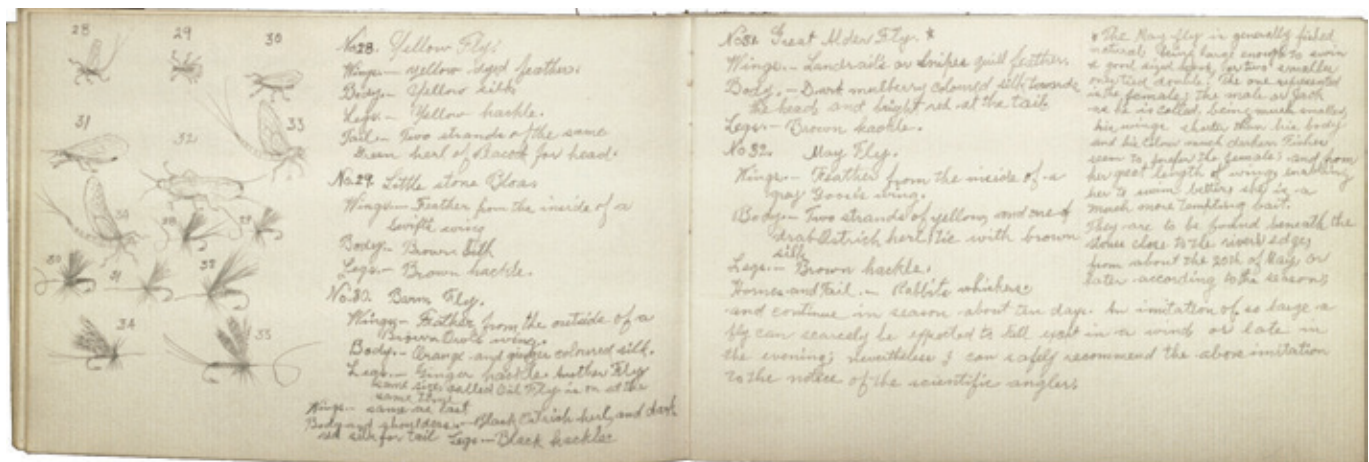 28
29
30
31
32
33
34
28
29
30
31
34
No 28. Yellow Fly.
Wings.— Yellow dyed feather.
Body.— Yellow silk
Legs.— Yellow hackle.
Tail.— Two strands of the same
Green herl of Peacock for head.
No 29. Little stone Bloa.
Wings.— Feather from the inside of a
Swifts wing
Body.— Brown Silk
Legs.— Brown hackle.
No 30. Barm Fly.
Wings.— Feather from the outside of a
Brown Owls wing.
Body.— Orange and ginger coloured silk.
Legs.— Ginger hackle Another Fly
same size called Fly is on at the
same time
Wings.— same as last
Body and shoulders.— Black Ostrich herl, and dark
red silk for tail Legs.— Black hackle
Great Alder Fly. *
Wings.— Landrails or Snipes quill feather.
Body.— Dark mulberry coloured silk towards
the head, and bright red at the tail
Legs.— Brown hackle.
No 32. May Fly.
Wings.— Feather from the inside of a
gray Goose's wing.
Body.— Two strands of yellow, and one of
drab Ostrich herl, tie with brown
silk
Legs.— Brown hackle.
Hornes and Tail.— Rabbits whiskers
* The May fly is generally fished
natural, being large enough to swim
a good sized hook, or two smaller
ones tied double. The one represented
is the female; the male or Jack
as he is called, being much smaller,
his wings shorter than his body
and his colour much darker. Fishes
seem to prefer the female; and from
her great length of wings enabling
her to swim better she is a
much more tempting bait.
They are to be found beneath the
stones close to the rivers edge,
from about the 20th of May or
later according to the season;
and continue in season about ten days. An imitation of so large a
fly can scarcely be expected to tell except in a wind or late in
the evening; nevertheless I can safely recommend the above imitation
to the notice of the scientific angler.